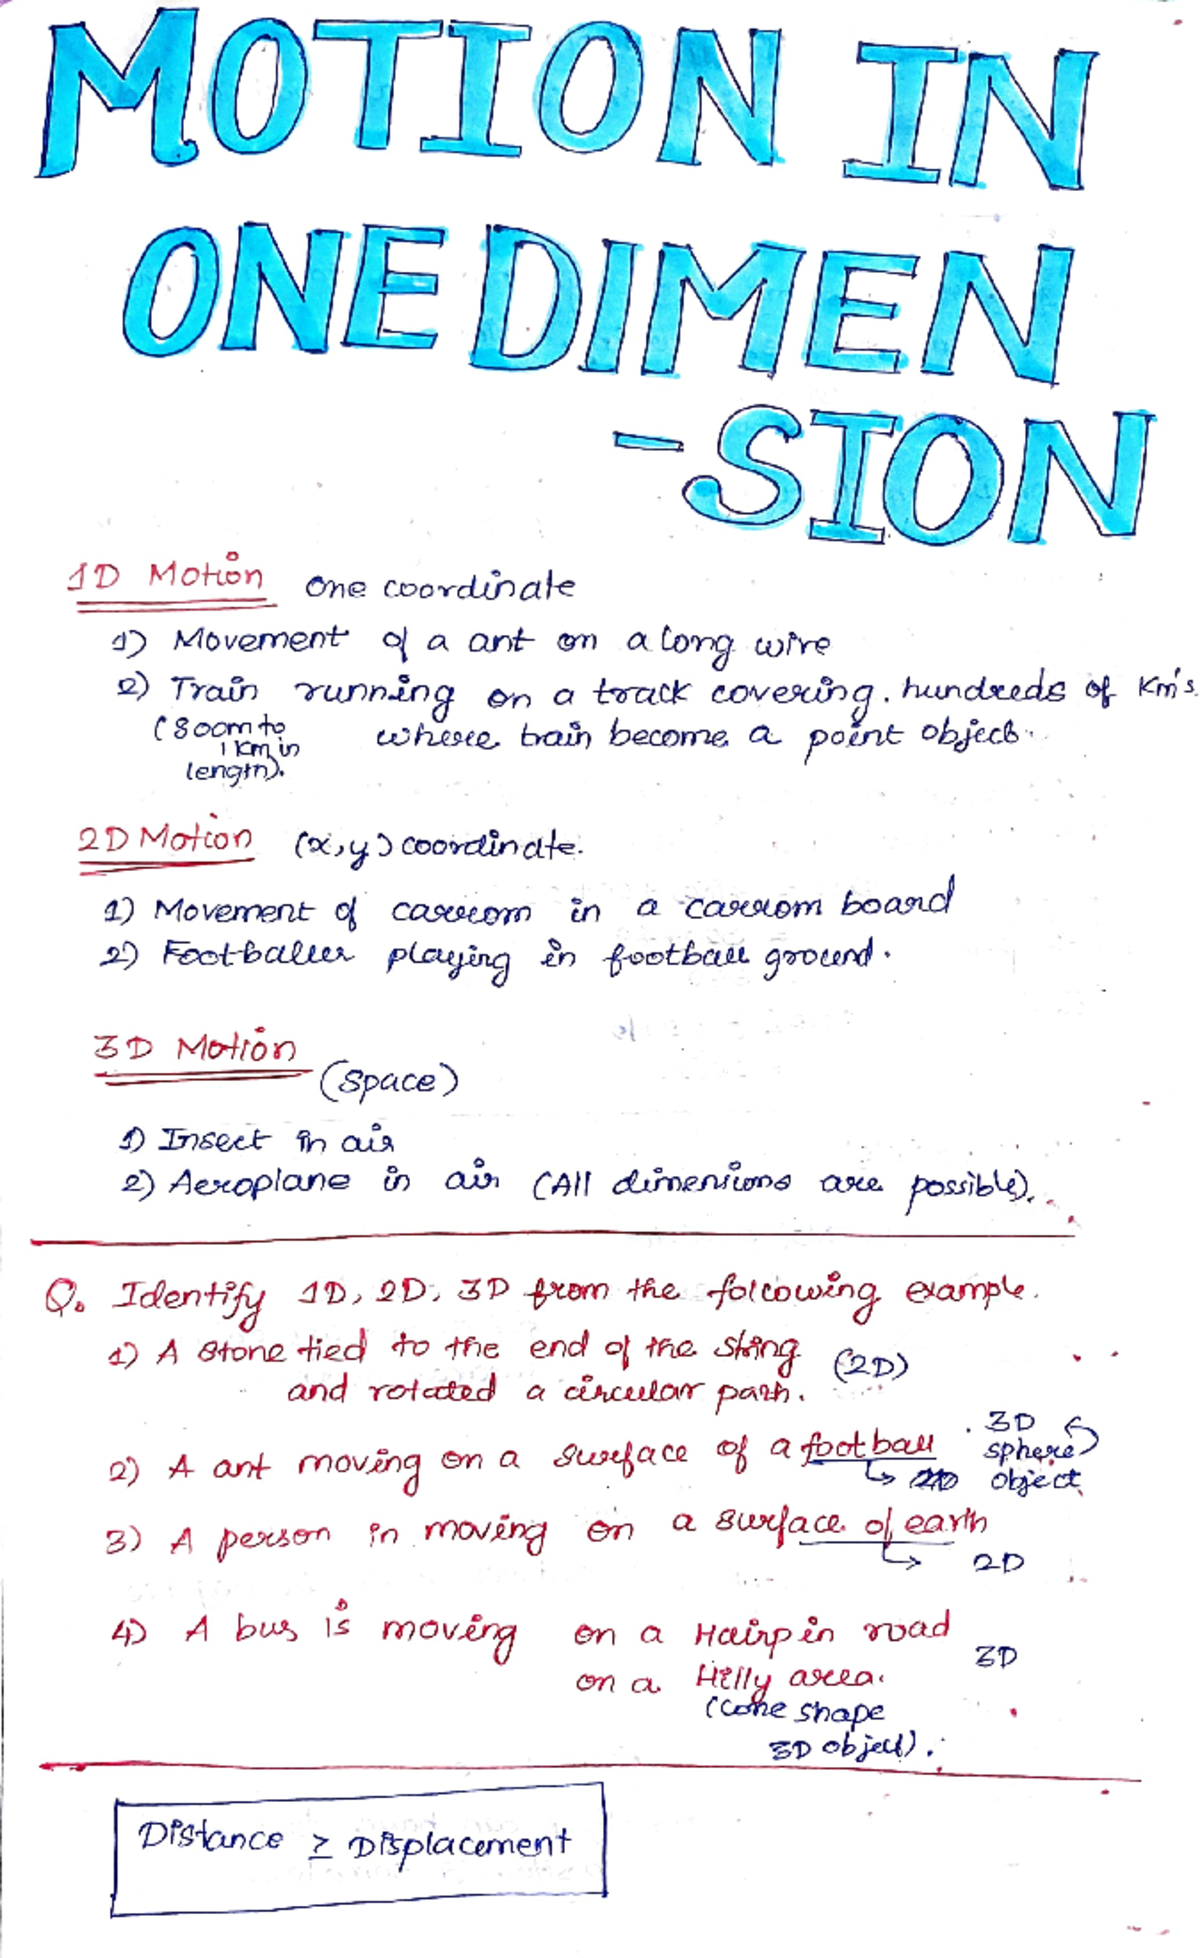 MOTION IN
ONE DIMEN
-SION
1D Motion one coordinate
1) Movement of a ant on a long wire
2) Train running on a track covering. hundreds of Km's.
(800m to 1 Km in length). where train become a point object.
2D Motion (x,y) coordinate.
1) Movement of carrom in a carrom board
2) Footballer playing in football ground.
3D Motion (space)
1) Insect in air
2) Aeroplane in air (All dimenions are possible).
Q. Identify 1D, 2D, 3D from the following example.
1) A stone tied to the end of the string (2D)
and rotated a circular path.
2) A ant moving on a surface of a football → 3D sphere object
3) A person in moving on a surface of earth → 2D
4) A bus is moving on a Hairpin road 3D
on a Hilly area.
(cone shape
3D object).
Distance ≥ Displacement